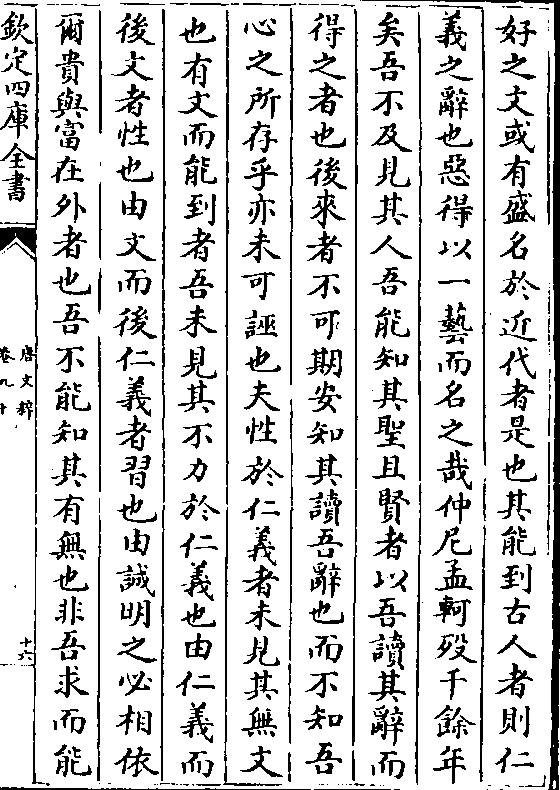 好之文或有盛名於近代者是也其能到古人者則仁
義之辭也惡得以一藝而名之哉仲尼孟軻歿千餘年
矣吾不及見其人吾能知其聖且賢者以吾讀其辭而
得之者也後來者不可期安知其讀吾辭也而不知吾
心之所存乎亦未可誣也夫性於仁義者未見其無文
也有文而能到者吾未見其不力於仁義也由仁義而
後文者性也由文而後仁義者習也由誠明之必相依
爾貴與富在外者也吾不能知其有無也非吾求而能
欽定四庫全書
唐文粹
卷九十
十六